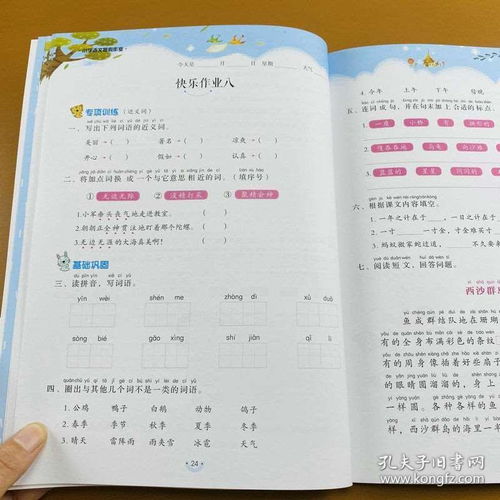 小学语文暑假作业
今天是____月____日 星期____天气____
快乐作业八
专项训练（近义词）
一、写出下列词语的近义词。
美丽→（ ） 著名→（ ） 凉爽→（ ）
开心→（ ） 假如→（ ） 认真→（ ）
二、将加点词换成一个与它意思相近的词。（填序号）
①无边无际 ②没精打采 ③聚精会神
1.小军垂头丧气地走进教室。（ ）
2.朝朝正全神贯注地盯着那个陀螺。（ ）
3.无边无涯的大海真美啊！（ ）
基础巩固
三、读拼音，写词语。
yīn wèi shén me zhōng dì xǔ duō
bóc gé gǎo xìng shí jiān qǐ lì
四、圈出与其他几个词不是一类的词语。
1.公鸡 鸭子 白鹅 动物 鸽子
2.春季 季节 秋季 夏季 冬季
3.晴天 雷阵雨 雨夹雪 冰雹 天气
24
4.今年 上午 下午 傍晚
五、连词成句，并在句末加上合适的标点。
1. 一座 小桥 有
2. 慢吞吞地 乌龟 向沙滩
3. 蓝蓝的 星星 闪闪的
六、根据课文内容填空。
1.一年之计在于____，一日之计在于
2.一寸____一寸金，寸金难买寸
3.蚂蚁搬家蛇过道，____不久要
七、阅读短文，回答问题。
西沙群
鱼成群结队地在珊瑚
有的全身布满彩色的条纹
有的周身像插着好些扇子
的眼睛圆溜溜的，身上
一样圆。各种各样的鱼
样，西沙群岛的海里一半
孔夫子旧书网
www.kongfz.com